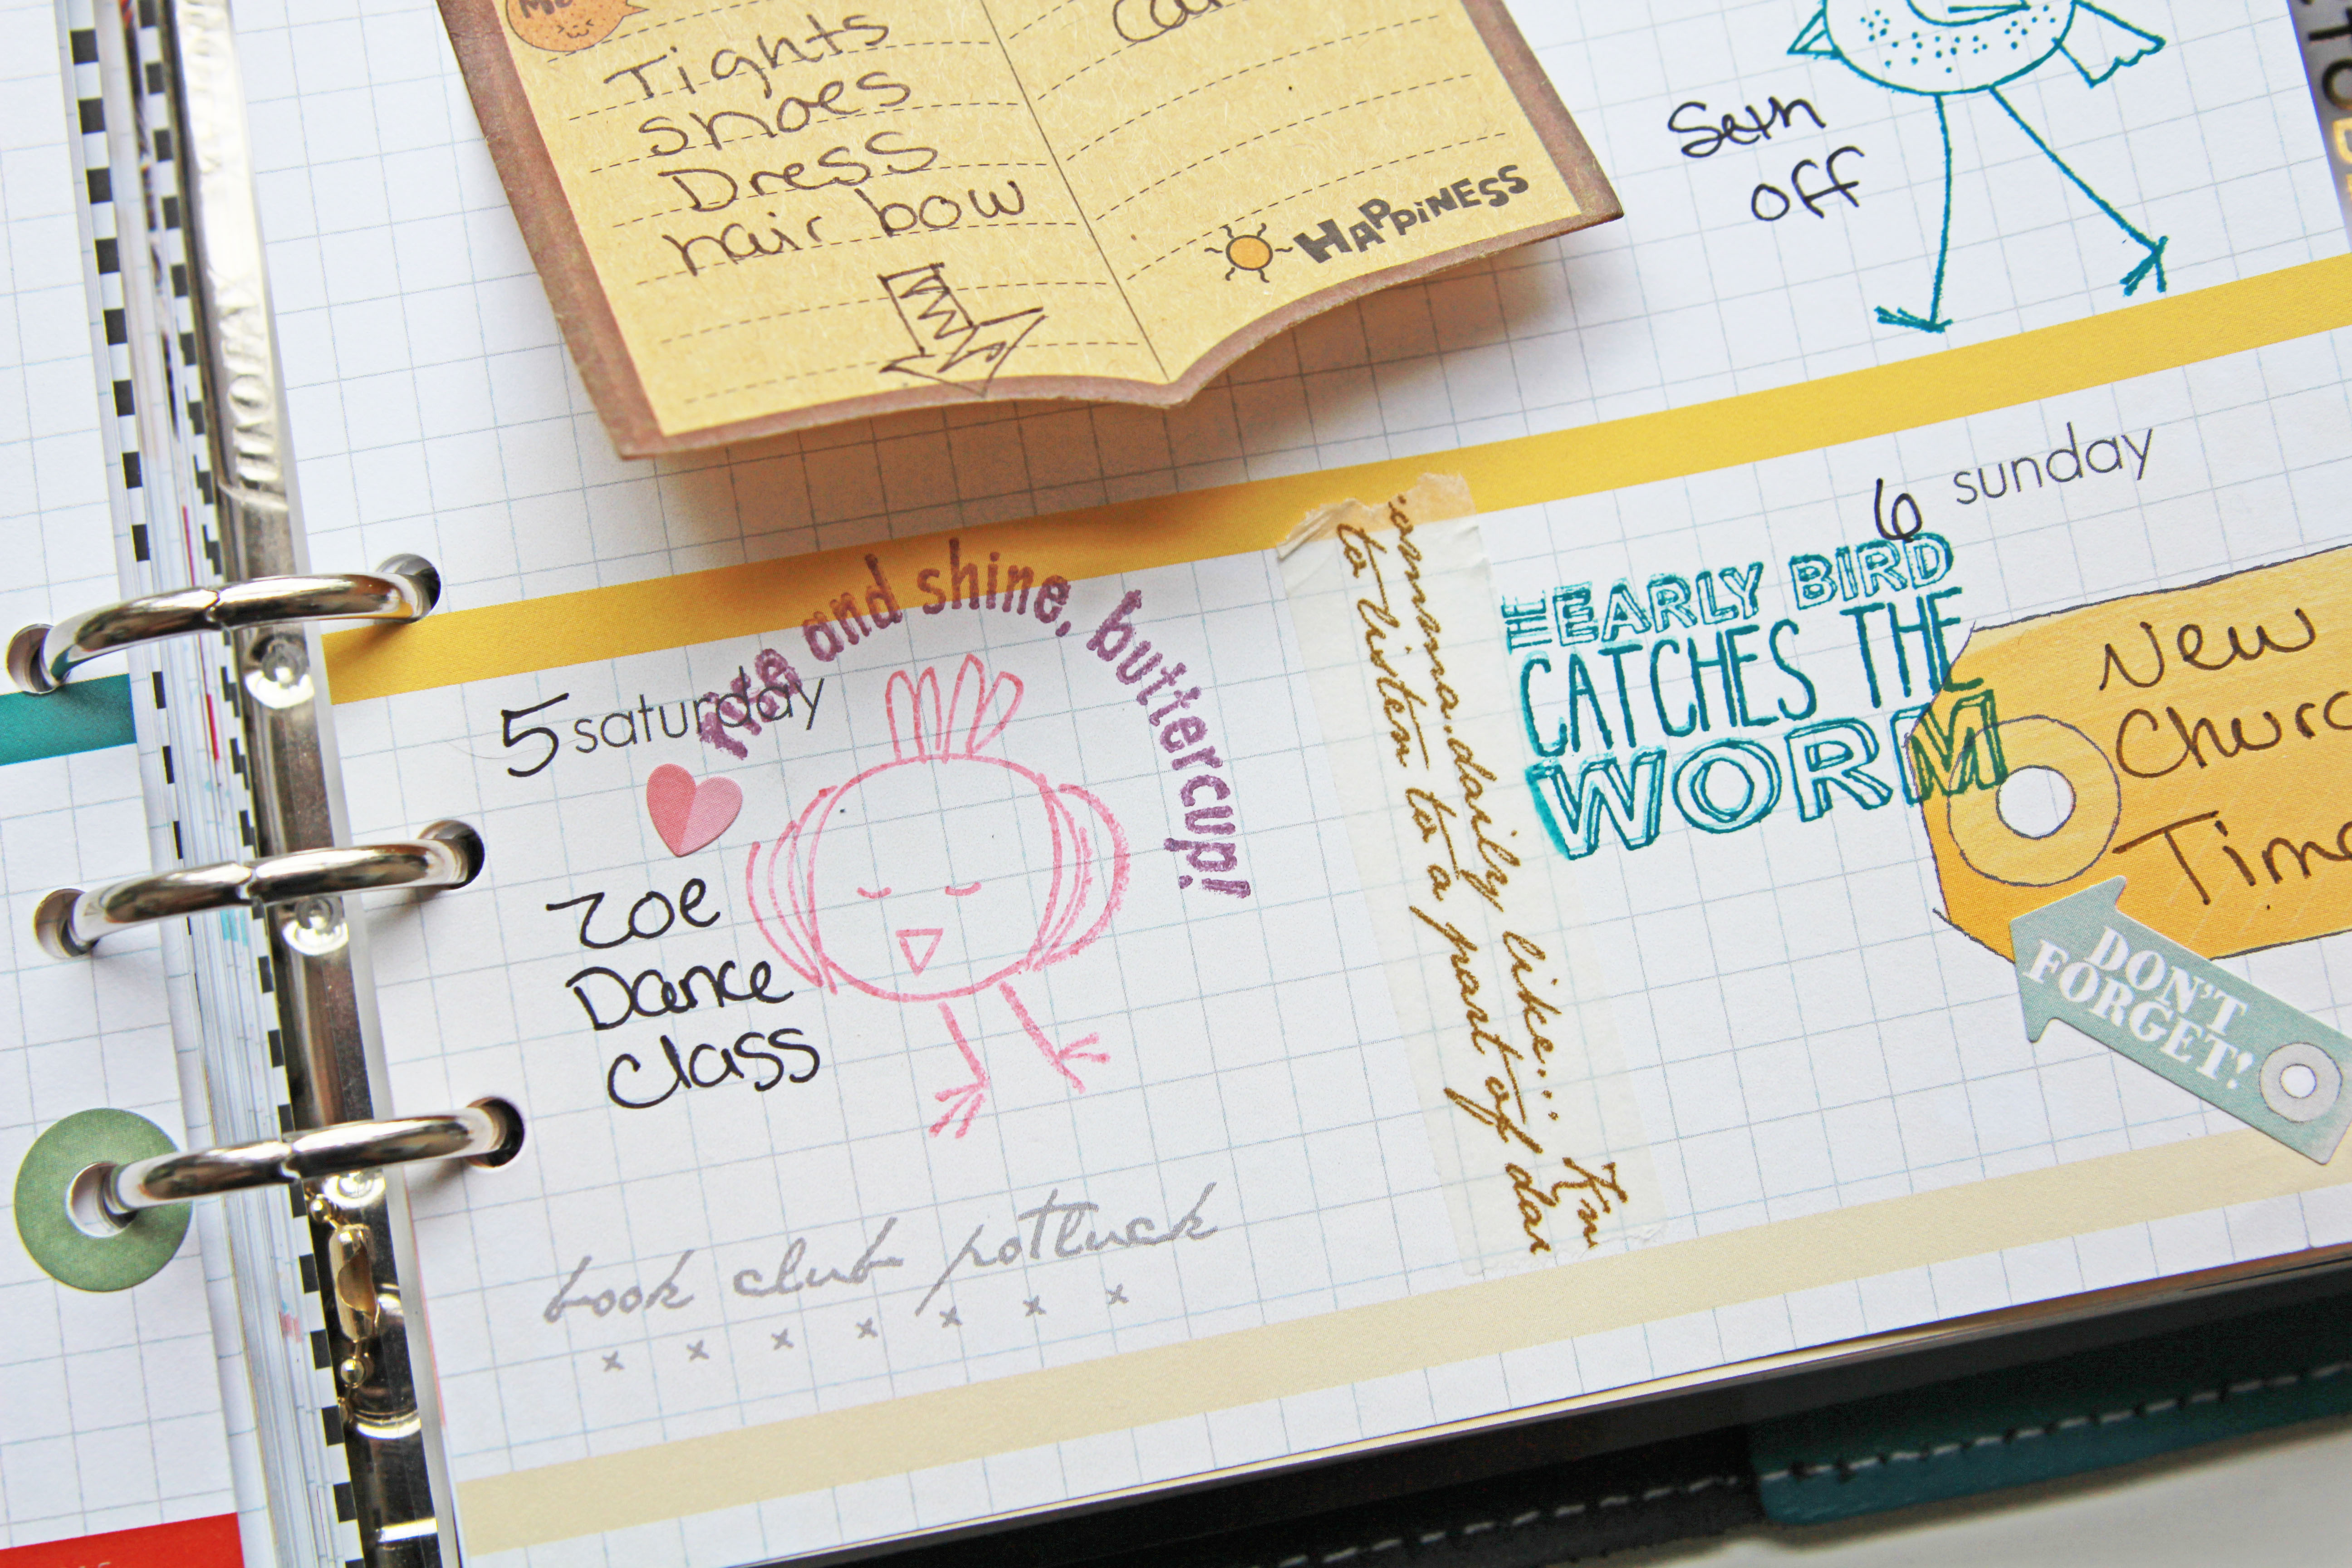 Tights
shoes
Dress
hair bow
HAPPiNESS
Seth
off
5 saturday
rise and shine, buttercup!
Zoe
Dance
Class
book club potluck
x x x x x x x
daily like... I'm
to listen to a part of
6 sunday
THE EARLY BIRD
CATCHES THE
WORM
New
Time
DON'T
FORGET!